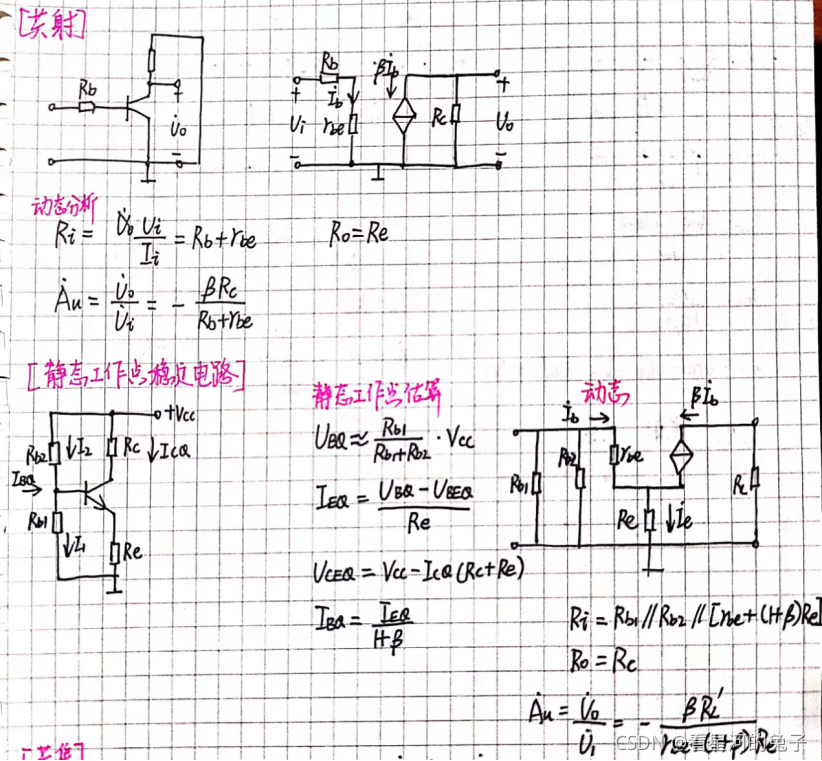 [共射]
Rb
+
U̇o
-
Rb
βİb
+
İb
Ui
rbe
Rc
+
Uo
-
-
动态分析
Ri = Ui/Ii = Rb+rbe
Ro=Re
Ȧu = U̇o/U̇i = - βRc/(Rb+rbe)
[静态工作点稳定电路]
+Vcc
Rb2
↓I2
Rc
↓ICQ
IBQ
Rb1
↓I1
Re
静态工作点估算
UBQ≈ Rb1/(Rb1+Rb2) · Vcc
IEQ = (UBQ-UBEQ)/Re
UCEQ = Vcc-ICQ(Rc+Re)
IBQ = IEQ/(1+β)
动态
İb →
← βİb
Rb1
Rb2
rbe
Re
↓İe
Ri = Rb1//Rb2//[rbe+(1+β)Re]
Ro = Rc
Ȧu = U̇o/U̇i = - βRL'/(rbe+(1+β)Re)
CSDN @看星河的兔子